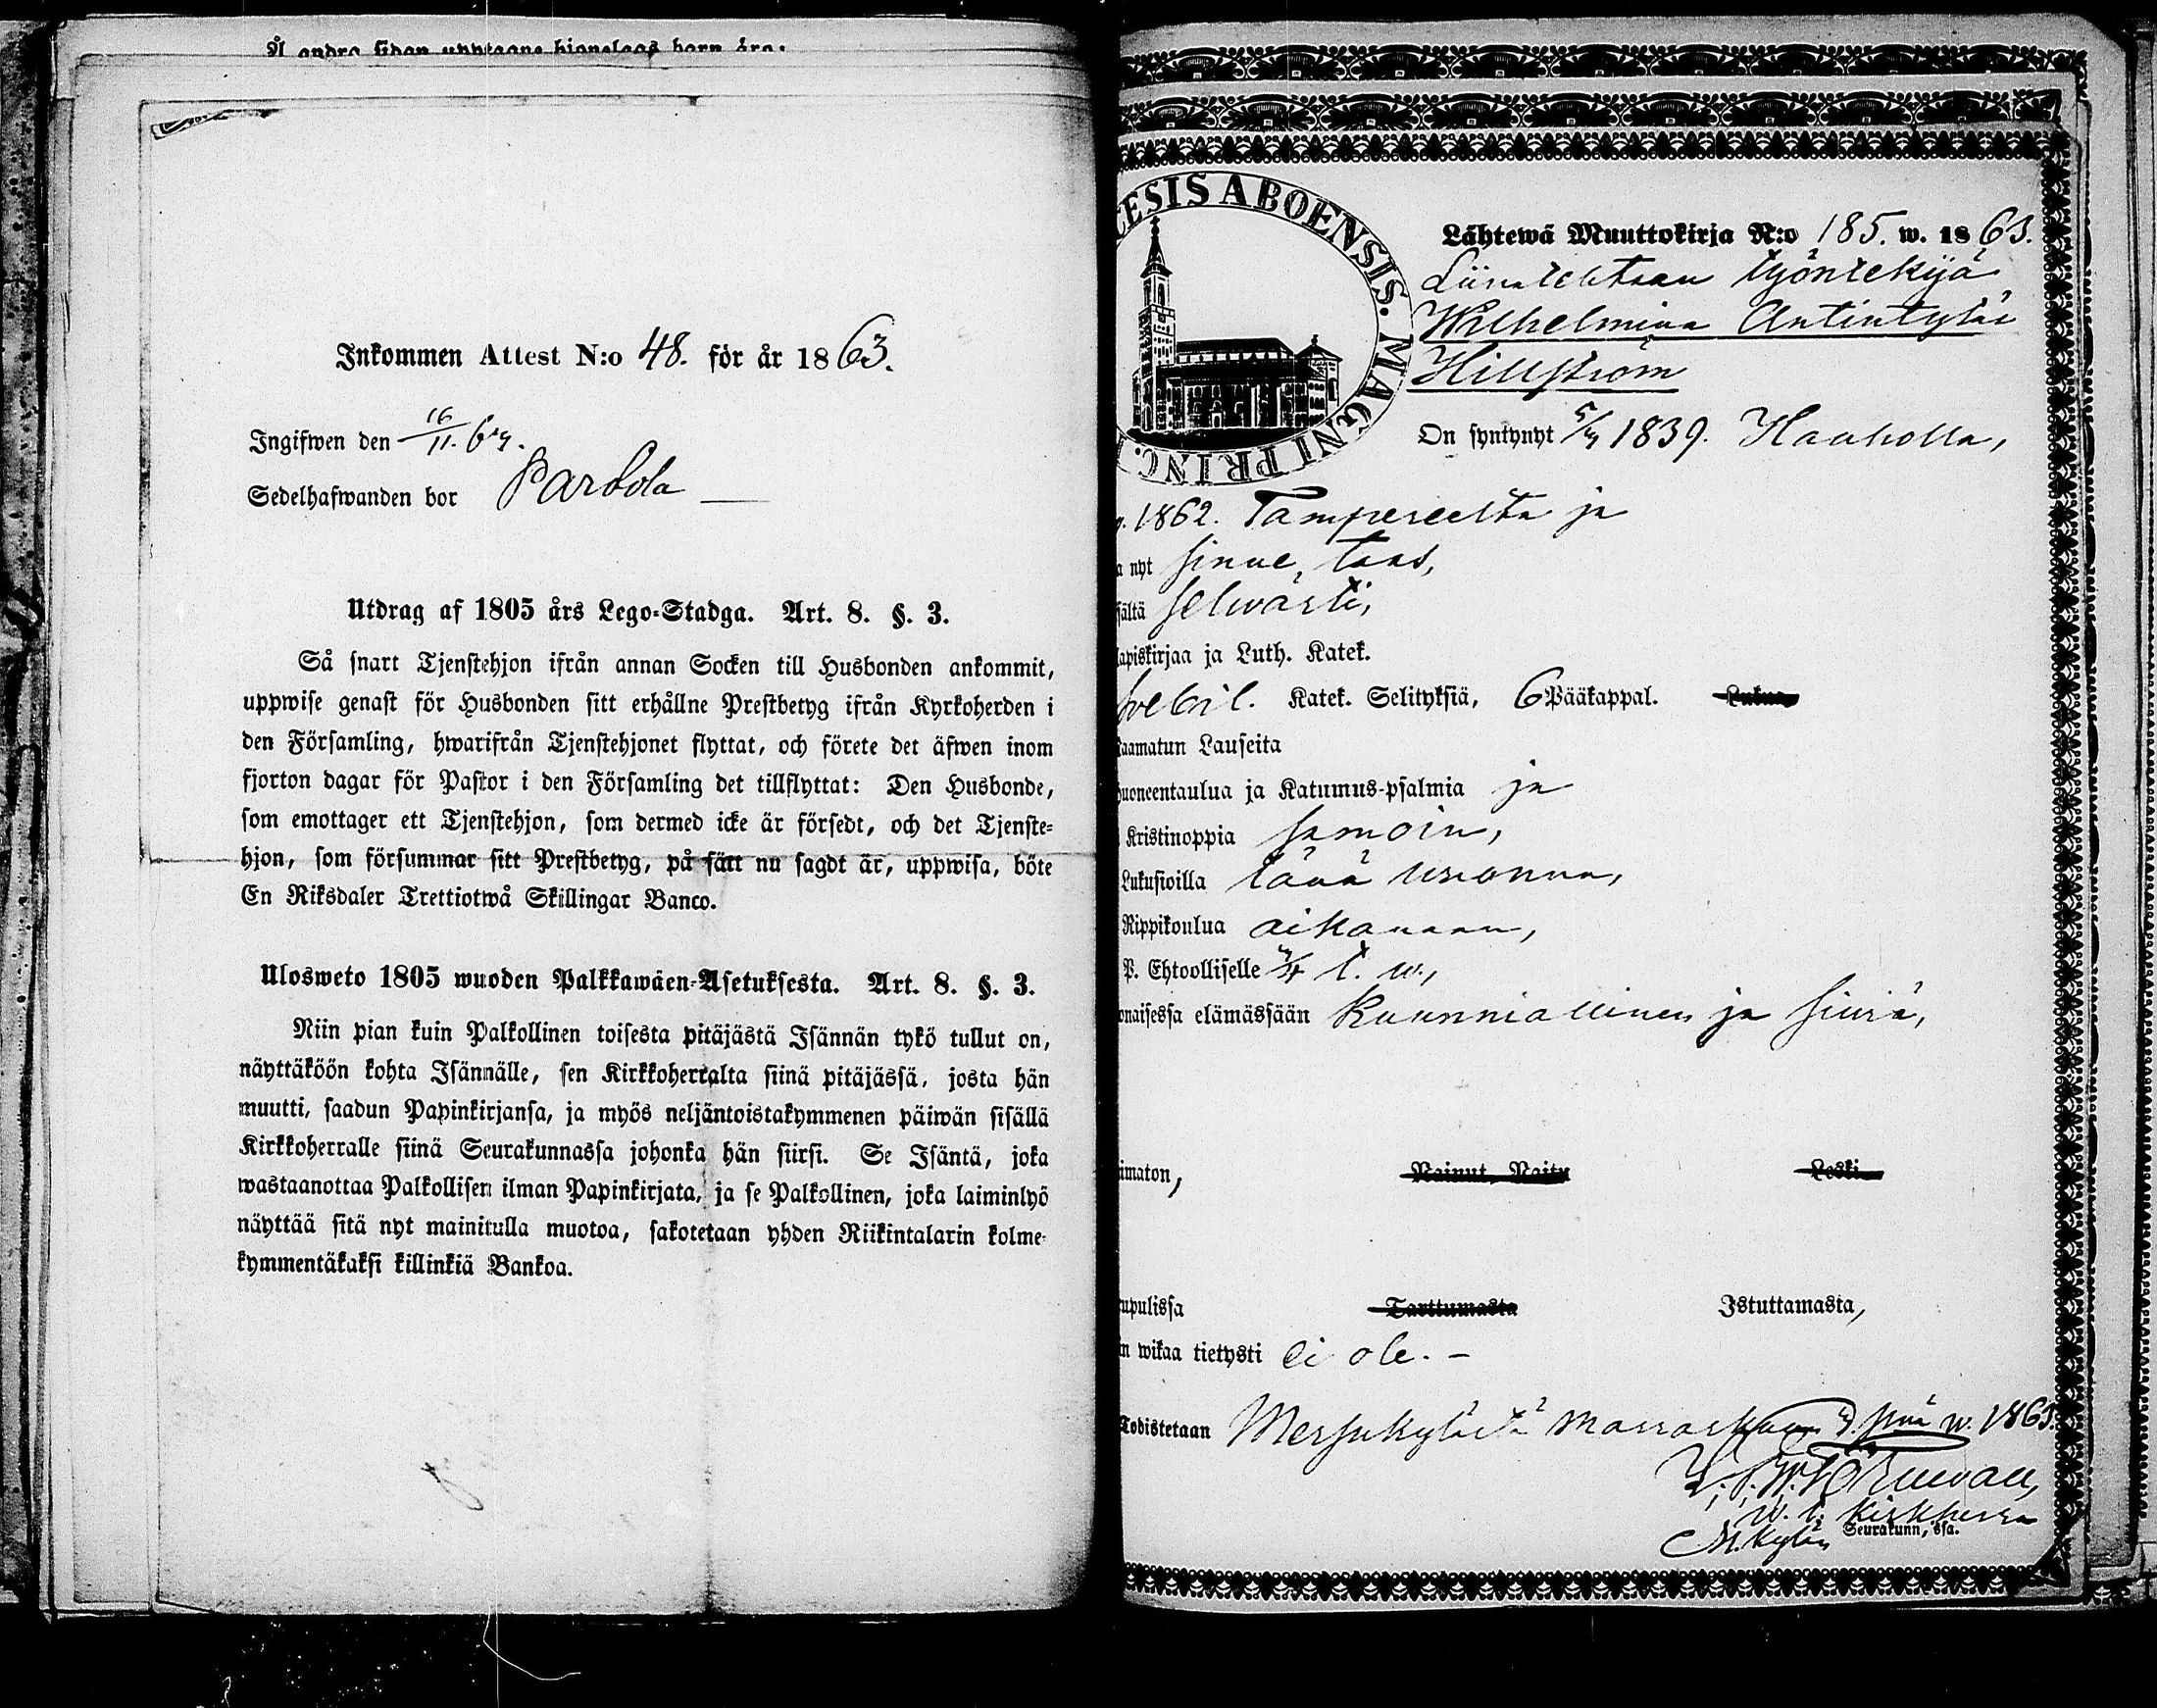 Å andra sidan upptagne hionelaas barn äro:
Inkommen Attest N:o 48. för år 1863.
Ingifwen den 16/11. 63.
Sedelhafwanden bor Parola
Utdrag af 1805 års Lego-Stadga. Art. 8. §. 3.
Så snart Tjenstehjon ifrån annan Socken till Husbonden ankommit,
uppwise genast för Husbonden sitt erhållne Prestbetyg ifrån Kyrkoherden i
den Församling, hwarifrån Tjenstehjonet flyttat, och förete det äfwen inom
fjorton dagar för Pastor i den Församling det tillflyttat: Den Husbonde,
som emottager ett Tjenstehjon, som dermed icke är försedt, och det Tjenste-
hjon, som försummar sitt Prestbetyg, på sätt nu sagdt är, uppwisa, böte
En Riksdaler Trettiotwå Skillingar Banco.
Ulosweto 1805 wuoden Palkkawäen-Asetuksesta. Art. 8. §. 3.
Niin pian kuin Palkollinen toisesta pitäjästä Isännän tykö tullut on,
näyttäköön kohta Isännälle, sen Kirkkoherralta siinä pitäjässä, josta hän
muutti, saadun Papinkirjansa, ja myös neljäntoistakymmenen päiwän sisällä
Kirkkoherralle siinä Seurakunnassa johonka hän siirsi. Se Isäntä, joka
wastaanottaa Palkollisen ilman Papinkirjata, ja se Palkollinen, joka laiminlyö
näyttää sitä nyt mainitulla muotoa, sakotetaan yhden Riikintalarin kolme-
kymmentäkaksi killinkiä Bankoa.
ESIS ABOENSIS. MAGNI PRINC.
Lähtewä Muuttokirja N:o 185. w. 1863.
Liinatehtaan työntekijä
Wilhelmina Antintytär
Hillström
On syntynyt 5/4 1839. Haaholla,
1862. Tampereelta ja
a nyt sinne, taas,
sältä selwästi,
apiskirjaa ja Luth. Katek.
Svebil. Katek. Selityksiä, 6 Pääkappal. Lukua
aamatun Lauseita
uoneentaulua ja Katumus-psalmia ja
Kristinoppia samoin,
Lukusioilla tänä wuonna,
Rippikoulua aikanaan,
P. Ehtoolliselle t. w.,
onaisessa elämässään kunniallinen ja siivo,
imaton, Nainut, Naitu Leski
upulissa Tarttumasta Istuttamasta,
n wikaa tietysti ei ole. -
Todistetaan Messukylästä Marraskuun 7. pnä w. 1863.
W. t. Kirkkherra
M. kylän Seurakunn,'ssa.